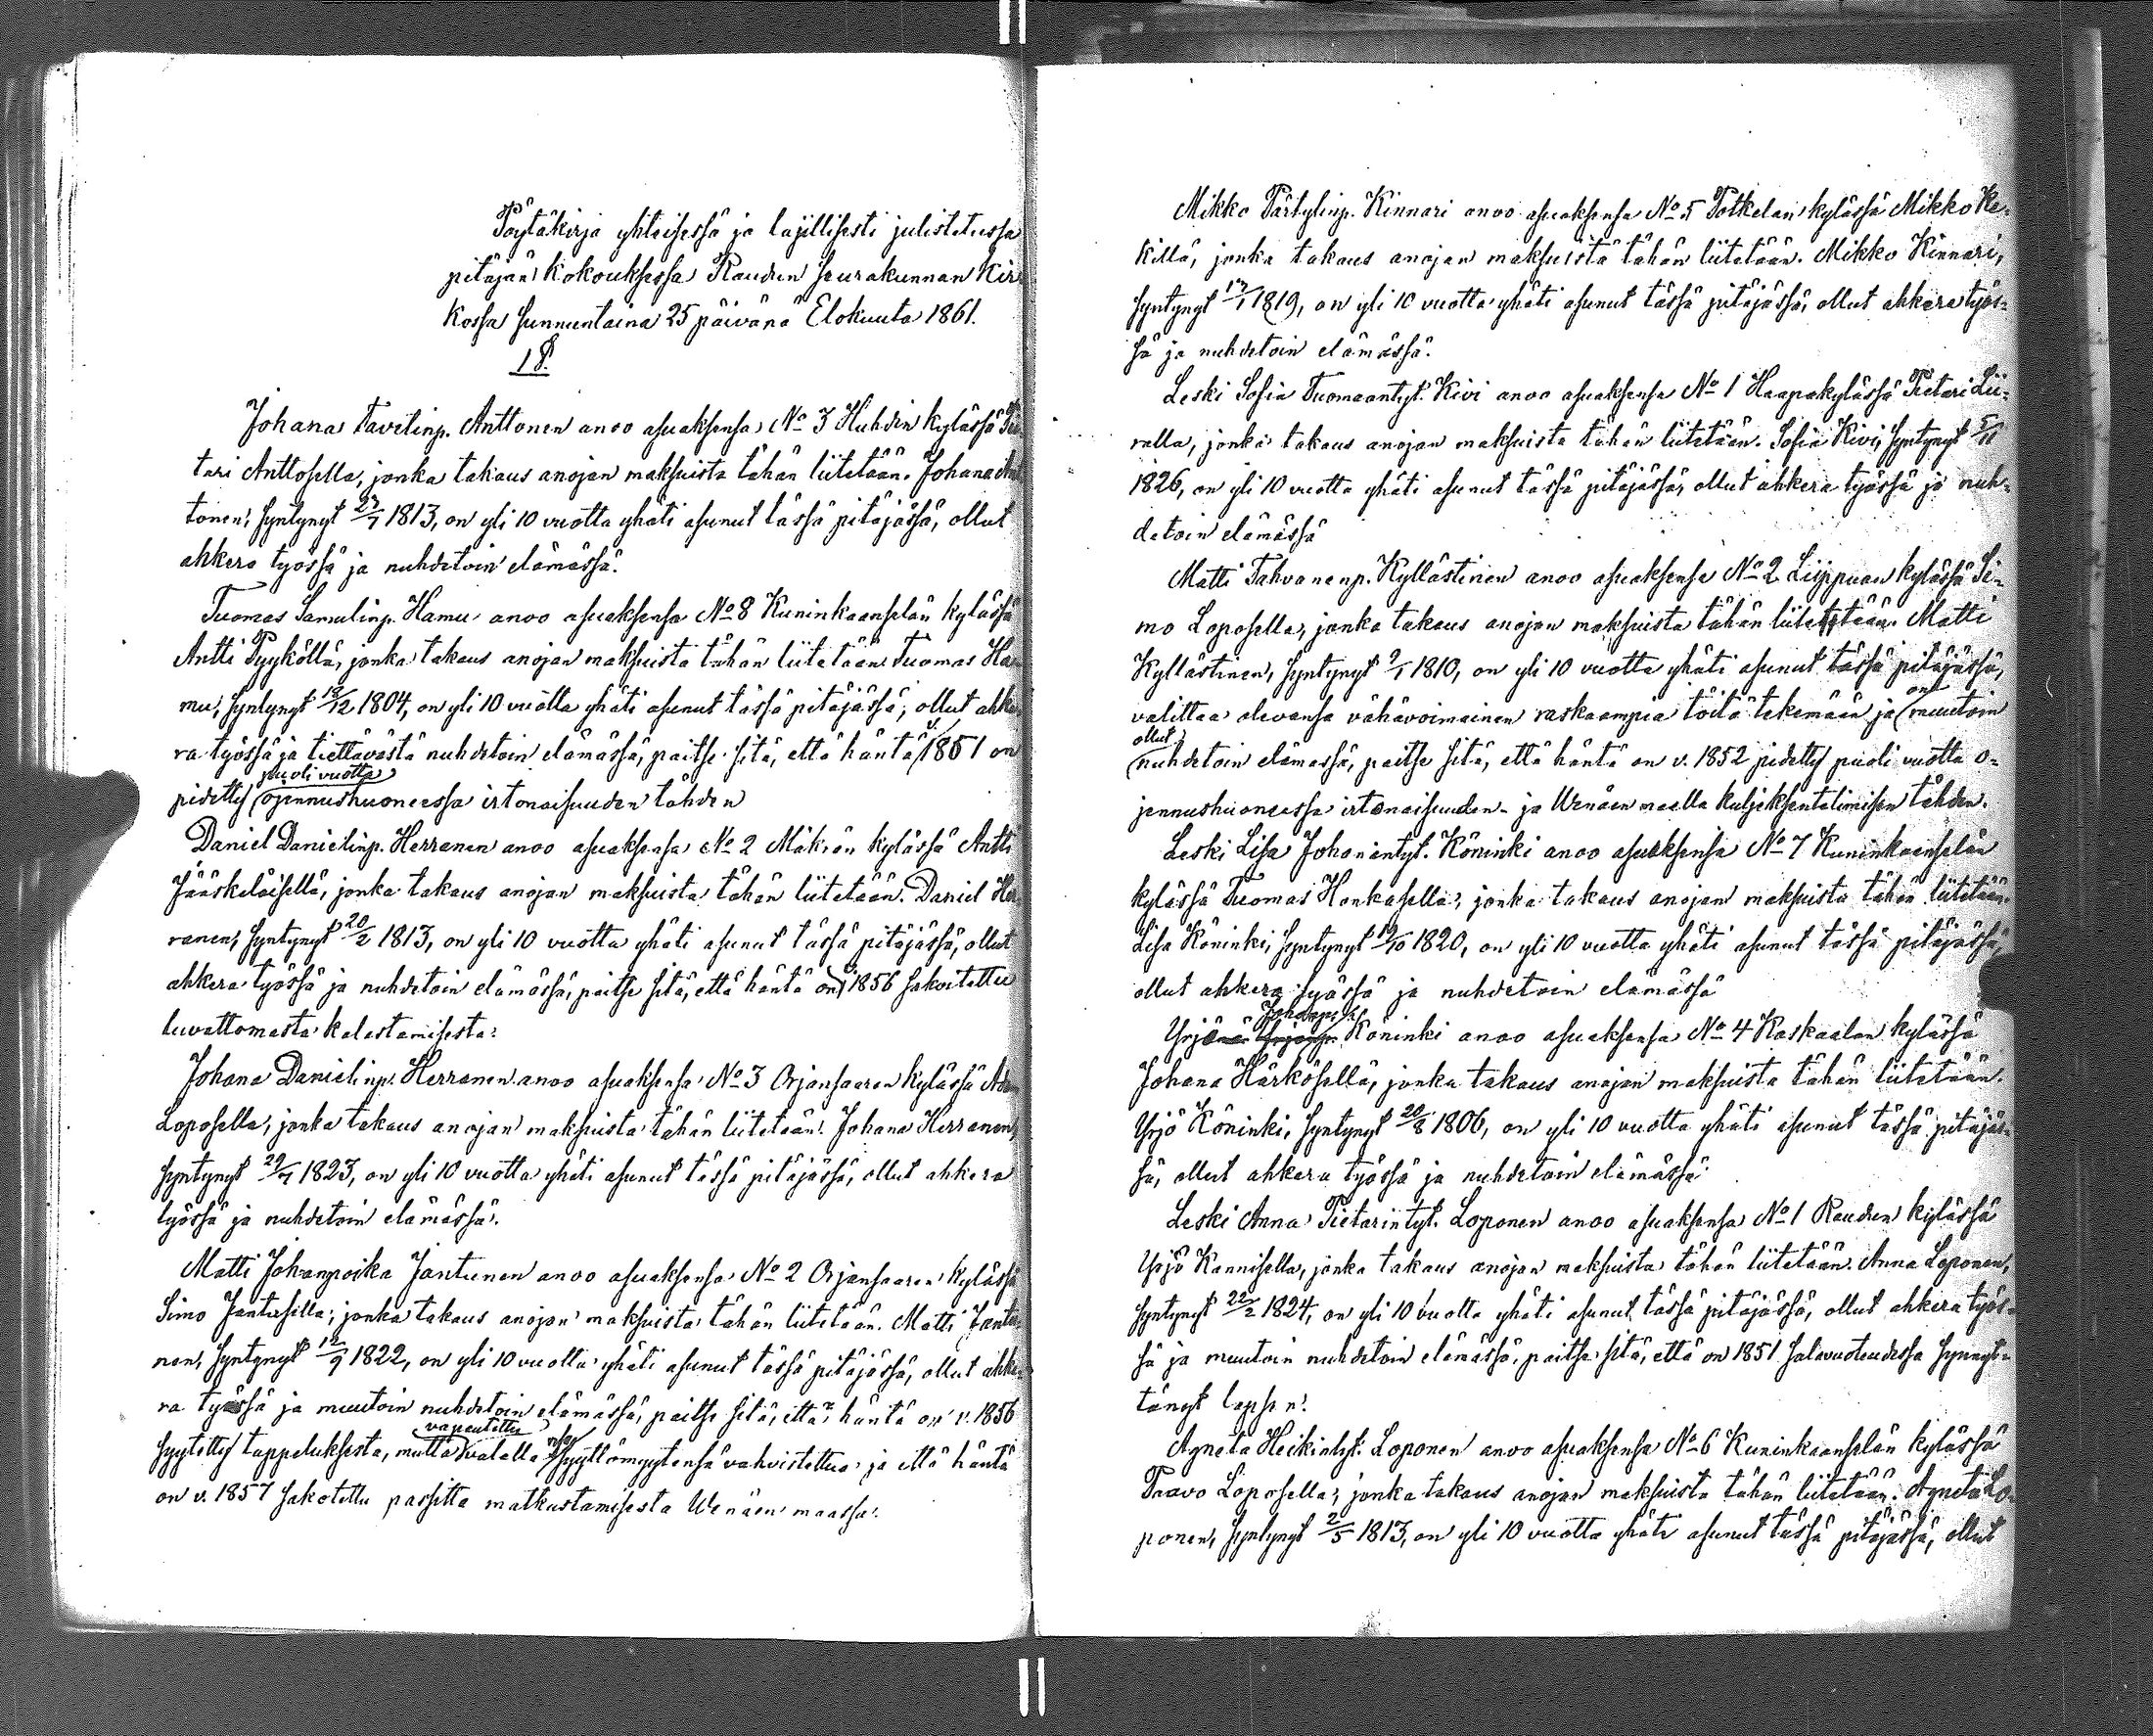 Pöytäkirja yhteisessä ja lajillisesti julistetussa
pitäjän kokouksessa Raudun seurakunnan Kir-
kossa sunnuntaina 25 päivänä Elokuuta 1861.
1 §.
Johana Tavetinp. Anttonen anoo asuaksensa No 3 Huhdin kylässä Pie-
tari Anttosella, jonka takaus anojan maksuista tähän liitetään. Johana Ant-
tonen, syntynyt 27/7 1813, on yli 10 vuotta yhäti asunut tässä pitäjässä, ollut
ahkera työssä ja nuhdetoin elämässä.
Tuomas Samulinp. Hamu anoo asuaksensa No 8 Kuninkaanselän kylässä
Antti Pyyköllä, jonka takaus anojan maksuista tähän liitetään Tuomas Ha-
mu, syntynyt 18/12 1804, on yli 10 vuotta yhäti asunut tässä pitäjässä, ollut ahke-
ra työssä ja tiettävästä nuhdetoin elämässä, paitse sitä, että häntä v. 1851 on
pidetty puoli vuotta ojennushuoneessa irtonaisuuden tähden
Daniel Danielinp. Herranen anoo asuaksensa No 2 Mäkrän kylässä Antti
Jääskeläisellä, jonka takaus anojan maksuista tähän liitetään. Daniel Her-
ranen, syntynyt 20/2 1813, on yli 10 vuotta yhäti asunut tässä pitäjässä, ollut
ahkera työssä ja nuhdetoin elämässä, paitse sitä, että häntä on v. 1856 sakoitettu
luvattomasta kalastamisesta.
Johana Danielinp. Herranen anoo asuaksensa No 3 Orjansaaren kylässä Adam
Loposella, jonka takaus anojan maksuista tähän liitetään. Johana Herranen,
syntynyt 29/7 1823, on yli 10 vuotta yhäti asunut tässä pitäjässä, ollut ahkera
työssä ja nuhdetoin elämässä.
Matti Johanpoika Jantunen anoo asuaksensa No 2 Orjansaaren kylässä
Simo Jantusella, jonka takaus anojan maksuista tähän liitetään. Matti Jantu-
nen, syntynyt 12/9 1822, on yli 10 vuotta yhäti asunut tässä pitäjässä, ollut ahke-
ra työssä ja muutoin nuhdetoin elämässä, paitse sitä, että häntä on v. 1856
syytetty tappeluksesta, mutta vapautettu valalla syyttömyytensä vahvistettua ja että häntä
on v. 1857 sakotettu passitta matkustamisesta Wenäen maassa.
Mikko Pärtylinp. Kinnari anoo asuaksensa No 5 Potkelan kylässä Mikko Ke-
killä, jonka takaus anojan maksuista tähän liitetään. Mikko Kinnari,
syntynyt 17/1 1819, on yli 10 vuotta yhäti asunut tässä pitäjässä, ollut ahkera työs-
sä ja nuhdetoin elämässä.
Leski Sofia Tuomaantyt. Kivi anoo asuaksensa No 1 Haapakylässä Pietari Lii-
ralla, jonka takaus anojan maksuista tähän liitetään. Sofia Kivi, syntynyt 5/11
1826, on yli 10 vuotta yhäti asunut tässä pitäjässä, ollut ahkera työssä ja nuh-
detoin elämässä
Matti Tahvananp. Kyllästinen anoo asuaksensa No 2 Liippuan kylässä Si-
mo Loposella, jonka takaus anojan maksuista tähän liitetään. Matti
Kyllästinen, syntynyt 9/1 1810, on yli 10 vuotta yhäti asunut tässä pitäjässä,
valittaa olevansa vähävoimainen raskaampia töitä tekemään ja on muutoin
ollut nuhdetoin elämässä, paitse sitä, että häntä on v. 1852 pidetty puoli vuotta o-
jennushuoneessa irtonaisuuden- ja Wenäen maalla kuljeksentelimisen tähden.
Leski Lisa Johanintyt. Köninki anoo asuaksensa No 7 Kuninkaanselän
kylässä Tuomas Honkasella, jonka takaus anojan maksuista tähän liitetään.
Lisa Köninki, syntynyt /10 1820, on yli 10 vuotta yhäti asunut tässä pitäjässä,
ollut ahkera työssä ja nuhdetoin elämässä
Yrjö Johanp. Köninki anoo asuaksensa No 4 Raskaalan kylässä
Johana Härkösellä, jonka takaus anojan maksuista tähän liitetään.
Yrjö Köninki, syntynyt 20/8 1806, on yli 10 vuotta yhäti asunut tässä pitäjäs-
sä, ollut ahkera työssä ja nuhdetoin elämässä
Leski Anna Pietarintyt. Loponen anoo asuaksensa No 1 Raudun kylässä
Yrjö Kannisella, jonka takaus anojan maksuista tähän liitetään. Anna Loponen,
syntynyt 22/2 1824, on yli 10 vuotta yhäti asunut tässä pitäjässä, ollut ahkera työs-
sä ja muutoin nuhdetoin elämässä, paitse sitä, että on 1851 salavuoteudessa synnyt-
tänyt lapsen.
Agneta Heikintyt. Loponen anoo asuaksensa No 6 Kuninkaanselän kylässä
Paavo Loposella, jonka takaus anojan maksuista tähän liitetään. Agneta Lo-
ponen, syntynyt 2/5 1813, on yli 10 vuotta yhäti asunut tässä pitäjässä, ollut